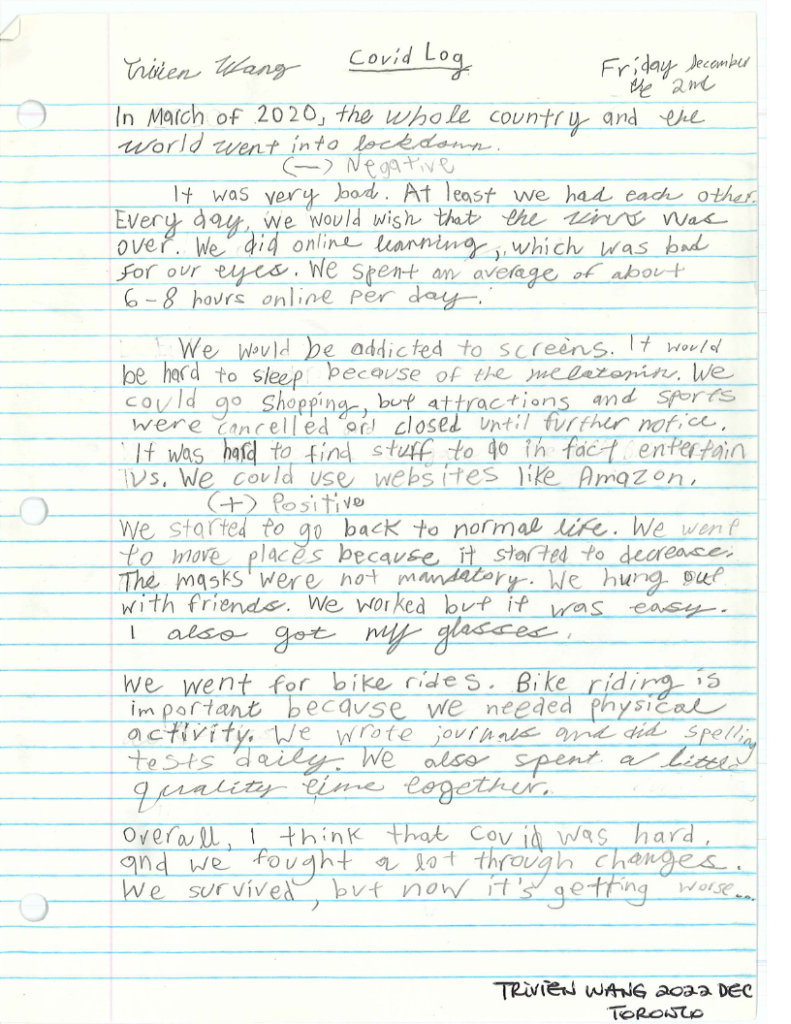 Trivien Wang
Covid Log
Friday December
the 2nd
In March of 2020, the whole country and the
world went into lockdown.
(—) Negative
It was very bad. At least we had each other.
Every day, we would wish that the virus was
over. We did online learning, which was bad
for our eyes. We spent an average of about
6-8 hours online per day.
We would be addicted to screens. It would
be hard to sleep because of the melatonin. We
could go shopping, but attractions and sports
were cancelled or closed until further notice.
It was hard to find stuff to do in fact entertain
us. We could use websites like Amazon.
(+) Positive
We started to go back to normal life. We went
to more places because it started to decrease.
The masks were not mandatory. We hung out
with friends. We worked but it was easy.
I also got my glasses.
We went for bike rides. Bike riding is
important because we needed physical
activity. We wrote journals and did spelling
tests daily. We also spent a little
quality time together.
Overall, I think that Covid was hard,
and we fought a lot through changes.
We survived, but now it's getting worse...
TRIVIEN WANG 2022 DEC
TORONTO